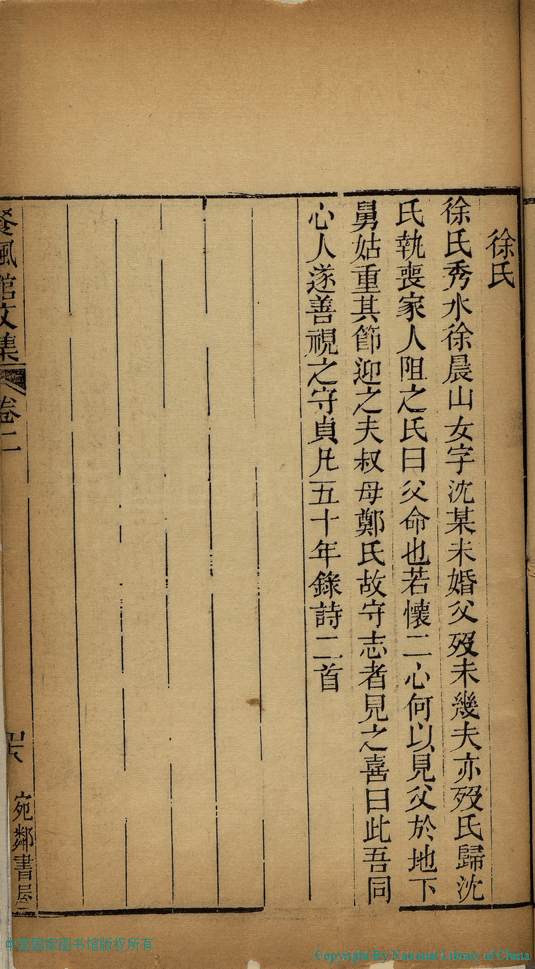 徐氏
徐氏秀水徐晨山女字沈某未婚父歿未幾夫亦歿氏歸沈
氏執喪家人阻之氏曰父命也若懷二心何以見父於地下
舅姑重其節迎之夫叔母鄭氏故守志者見之喜曰此吾同
心人遂善視之守貞凡五十年錄詩二首
餐楓館文集
卷二
宛鄰書屋
中国国家图书馆版权所有
Copyright By National Library of China